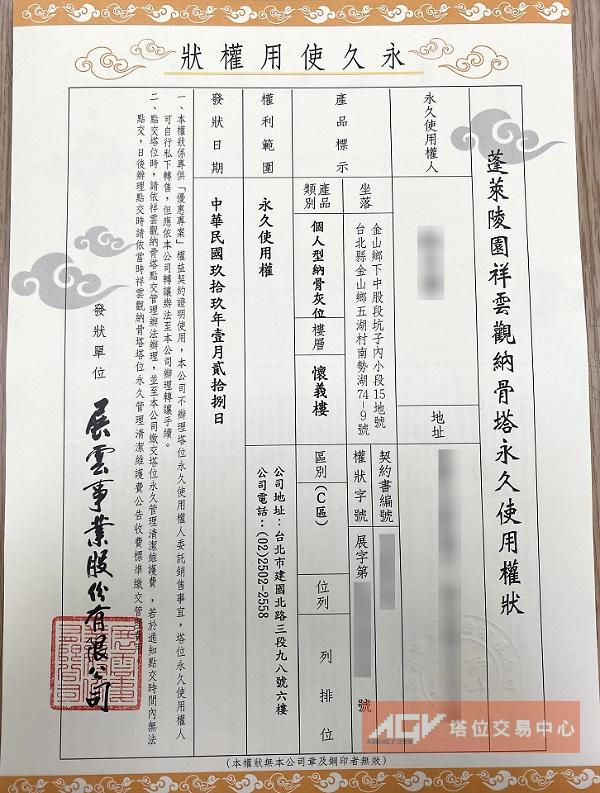 永久使用權狀
蓬萊陵園祥雲觀納骨塔永久使用權狀
永久使用權人
地址
產品標示
坐落
金山鄉下中股段坑子內小段15地號
台北縣金山鄉五湖村南勢湖74-9號
契約書編號
權狀字號
展字第
號
產品類別
個人型納骨灰位
樓層
懷義樓
區別
(C區)
位列
列 排 位
權利範圍
永久使用權
發狀日期
中華民國玖拾玖年壹月貳拾捌日
公司地址：台北市建國北路三段九八號六樓
公司電話：(02)2502-2558
一、本權狀係專供「優惠專案」權益契約證明使用，本公司不辦理塔位永久使用權人委託銷售事宜，塔位永久使用權人
可自行私下轉售，但應依本公司轉讓辦法至本公司辦理轉讓手續。
二、點交塔位時，請依祥雲觀納骨塔點交管理辦法辦理，並至本公司繳交塔位永久管理清潔維護費，若於通知點交時間內無法
點交，日後辦理點交時請依當時祥雲觀納骨塔塔位永久管理清潔維護費公告收費標準繳交管理費用。
發狀單位
展雲事業股份有限公司
AGV 塔位交易中心
(本權狀無本公司章及鋼印者無效)